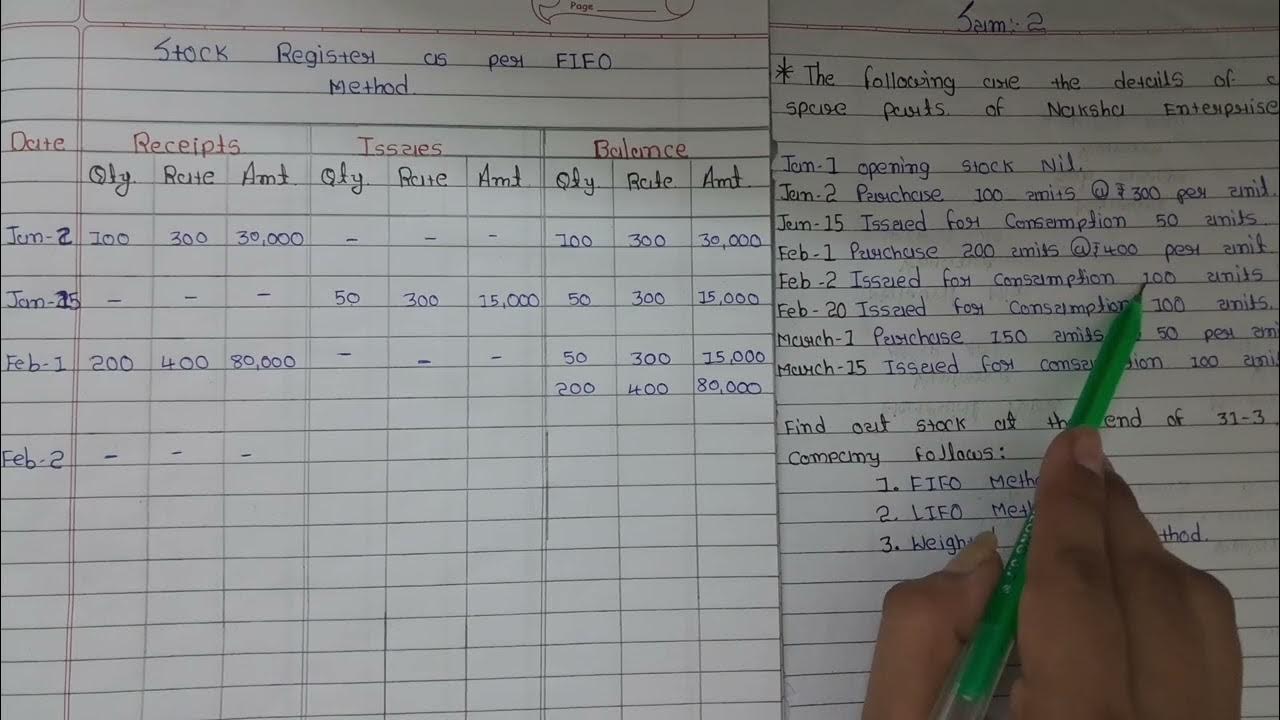 Page
Stock Register as per FIFO
Method
Date Receipts Issues Balance
Qty Rate Amt Qty Rate Amt Qty Rate Amt
Jan-2 100 300 30,000 - - - 100 300 30,000
Jan-15 - - - 50 300 15,000 50 300 15,000
Feb-1 200 400 80,000 - - - 50 300 15,000
200 400 80,000
Feb-2 - - -
Sum:-2
* The following are the details of
spare parts of Naksha Enterprise
Jan-1 opening stock Nil.
Jan-2 Purchase 100 units @ ₹300 per unit.
Jan-15 Issued for Consumption 50 units
Feb-1 Purchase 200 units @ ₹400 per unit
Feb-2 Issued for Consumption 100 units
Feb-20 Issued for Consumption 100 units.
March-1 Purchase 150 units 50 per
March-15 Issued for 100
Find out stock at the end of 31-3
follows:
1. FIFO
2. LIFO
3.